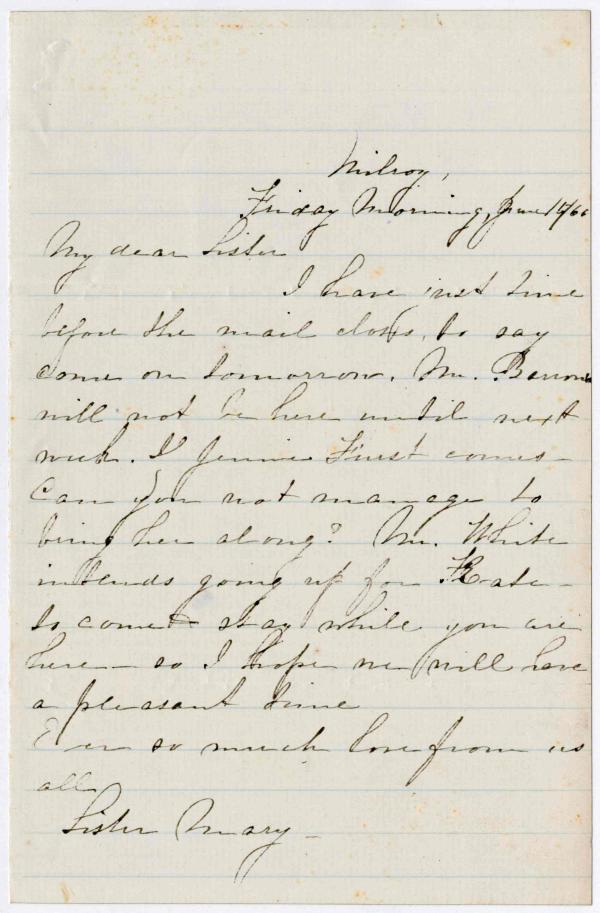 Milroy,
Friday Morning, June 14/66
My dear Sister
I have just time
before the mail closes, to say
come on tomorrow. Mr. Barrows
will not be here until next
week. If Jennie Furst comes –
Can you not manage to
bring her along? Mr. White
intends going up for Kate –
to come & stay while you are
here – so I hope we will have
a pleasant time
Ever so much love from us
all
Sister Mary –